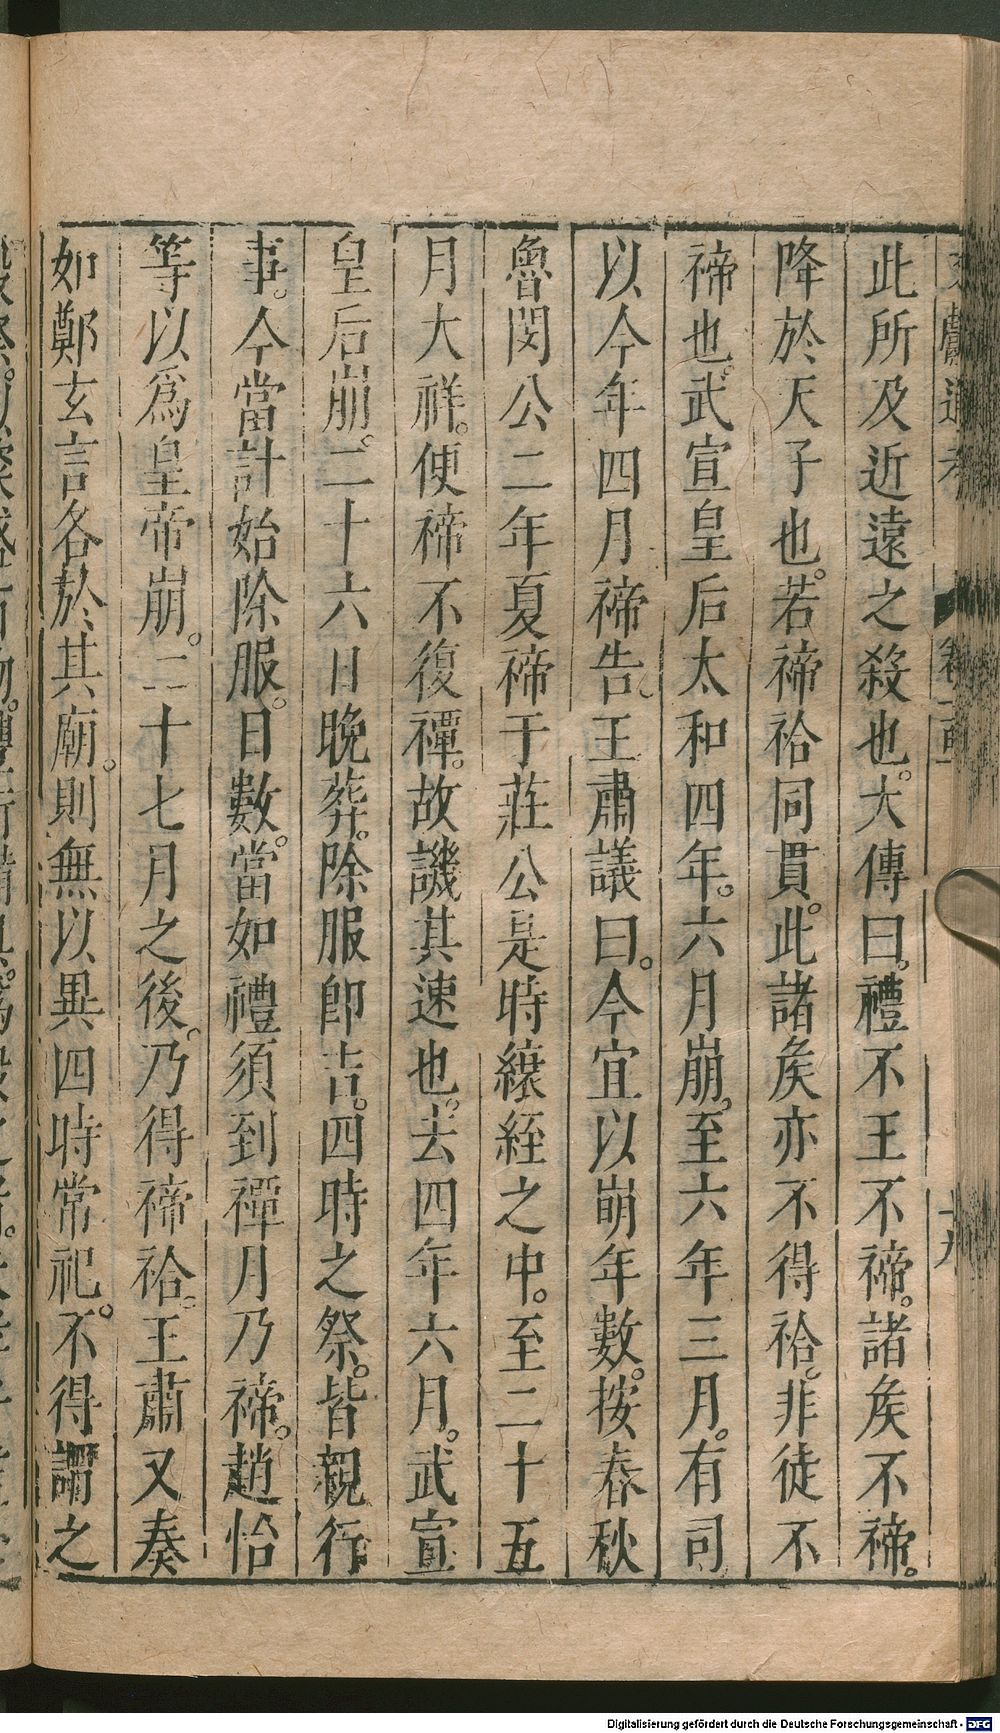 此所及近遠之殺也。大傳曰。禮不王不禘。諸矦不禘。
降於天子也。若禘祫同貫。此諸矦亦不得祫。非徒不
禘也。武宣皇后太和四年。六月崩。至六年三月。有司
以今年四月禘告。王肅議曰。今宜以崩年數。按春秋
魯閔公二年夏禘于莊公是時縗絰之中。至二十五
月大祥。便禘不復禫。故譏其速也。去四年六月。武宣
皇后崩。二十六日晚葬。除服卽吉。四時之祭。皆親行
事。今當計始除服。日數。當如禮須到禫月乃禘。趙怡
等以爲皇帝崩。二十七月之後。乃得禘祫。王肅又奏
如鄭玄言各於其廟。則無以異四時常祀。不得謂之
Digitalisierung gefördert durch die Deutsche Forschungsgemeinschaft - DFG